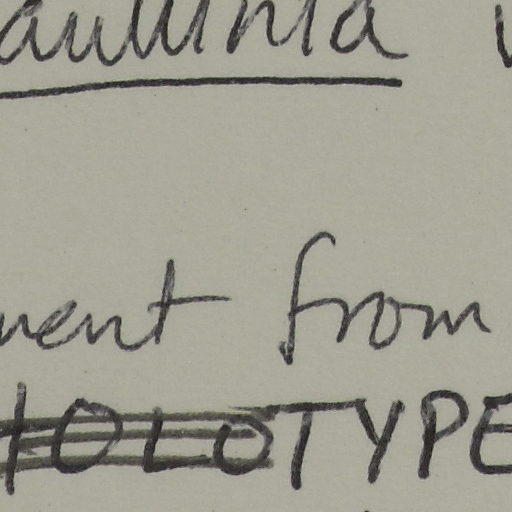 aullinia
ment from
HOLOTYPE